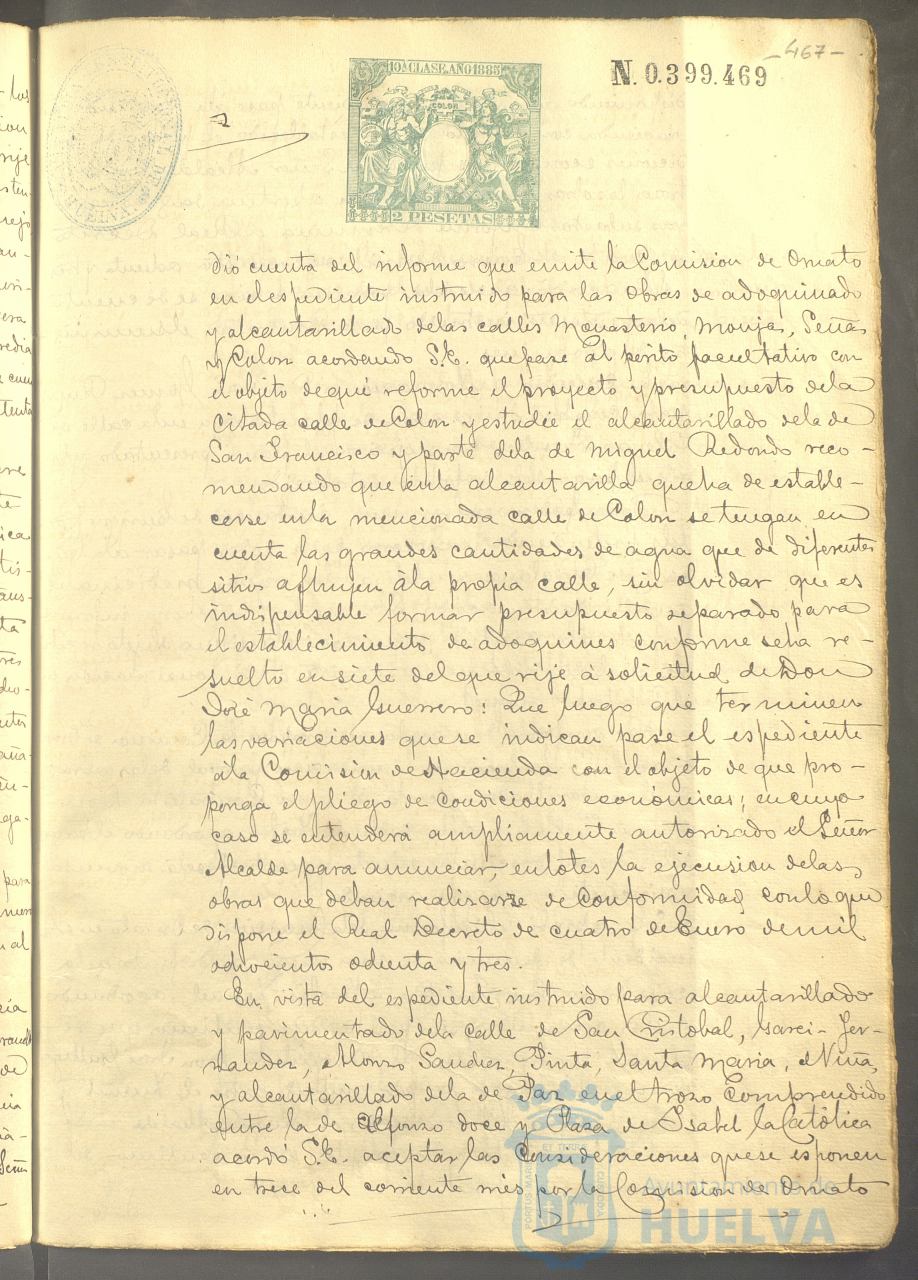 -467-
10ª CLASE. AÑO 1885
COLON
N. 0.399.469
HUELVA
2 PESETAS
dió cuenta del informe que emite la Comision de Ornato
en el espediente instruido para las obras de adoquinado
y alcantarillado de las calles Monasterio, Monjas, Señas
y Colon acordando S.E. que pase al perito facultativo con
el objeto de que reforme el proyecto y presupuesto de la
citada calle de Colon y estudie el alcantarillado de la de
San Francisco y parte de la de Miguel Redondo reco-
mendando que en la alcantarilla que ha de estable-
cerse en la mencionada calle de Colon se tengan en
cuenta las grandes cantidades de agua que de diferentes
sitios afluyen á la propia calle, sin olvidar que es
indispensable formar presupuesto separado para
el establecimiento de adoquines conforme se ha re-
suelto en siete del que rije á solicitud de Don
José Maria Guerrero: Que luego que terminen
las variaciones que se indican pase el espediente
á la Comision de Hacienda con el objeto de que pro-
ponga el pliego de condiciones económicas; en cuyo
caso se entenderá ampliamente autorizado el Señor
Alcalde para anunciar, en lotes la ejecusion de las
obras que deban realizarse de conformidad con lo que
dispone el Real Decreto de cuatro de Enero de mil
ochocientos ochenta y tres.
En vista del espediente instruido para alcantarillado
y pavimentado de la calle de San Cristobal, Garci-Fer-
nandez, Alonso Sanchez, Pinta, Santa Maria, Niña
y alcantarillado de la de Paz en el trozo comprendido
entre la de Alfonso doce y Plaza de Isabel la Católica
acordó S.E. aceptar las consideraciones que se esponen
en trece del corriente mes por la Comision de Ornato
Ayuntamiento de
HUELVA